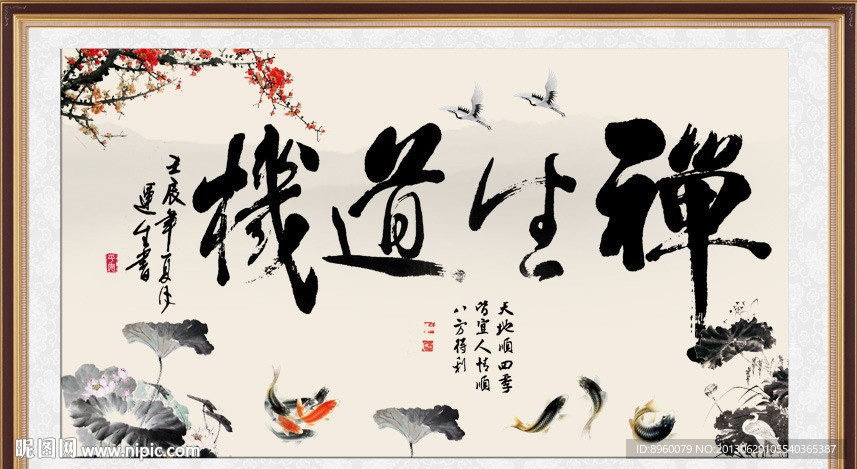 禪生道機
天地順四季
皆宜人情順
八方得利
壬辰年夏月
運生書
昵图网
www.nipic.com
ID:8960079 NO:20130629105540365387